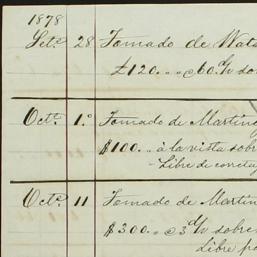 1878
Set.e 28 Tomado de Wats
£120.,,@60 d/v so
Oct.e 1.o Tomado de Martin
$100.,, à la vista sobr
- Libre de corretag
Oct.e 11 Tomado de Martin
$300.,,@3 d/v sobre
Libre po